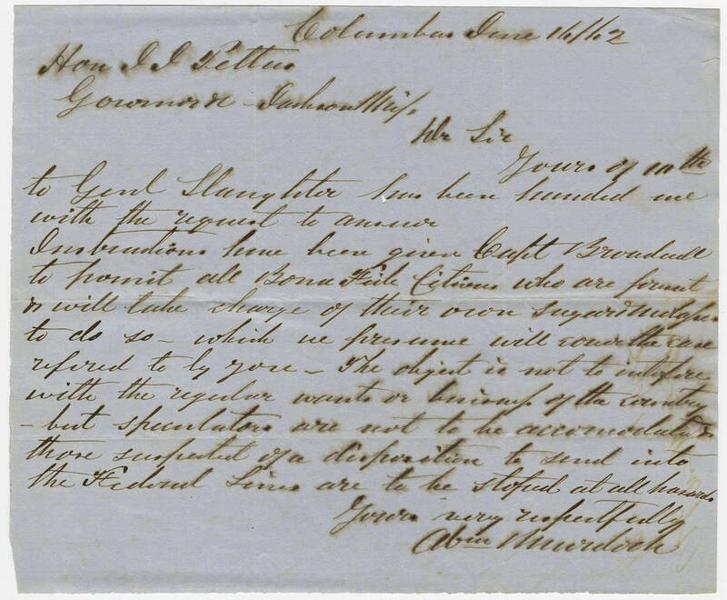 Columbus June 16/62
Hon J J Pettus
Governor &c Jackson Miss
Dr Sir
Yours of 10th
to Genl Slaughter has been handed me
with the request to answer
Instructions have been given Capt Broadwell
to permit all Bona Fide Citizens who are present
& will take charge of their own sugar & Molasses
to do so - which we presume will cover the case
refered to by you - The object is not to interfere
with the regular wants or business of the country
- but speculators are not to be accomodated &
those suspected of a disposition to send into
the Federal Lines are to be stoped at all hazards
Yours very respectfully
Abm Murdock